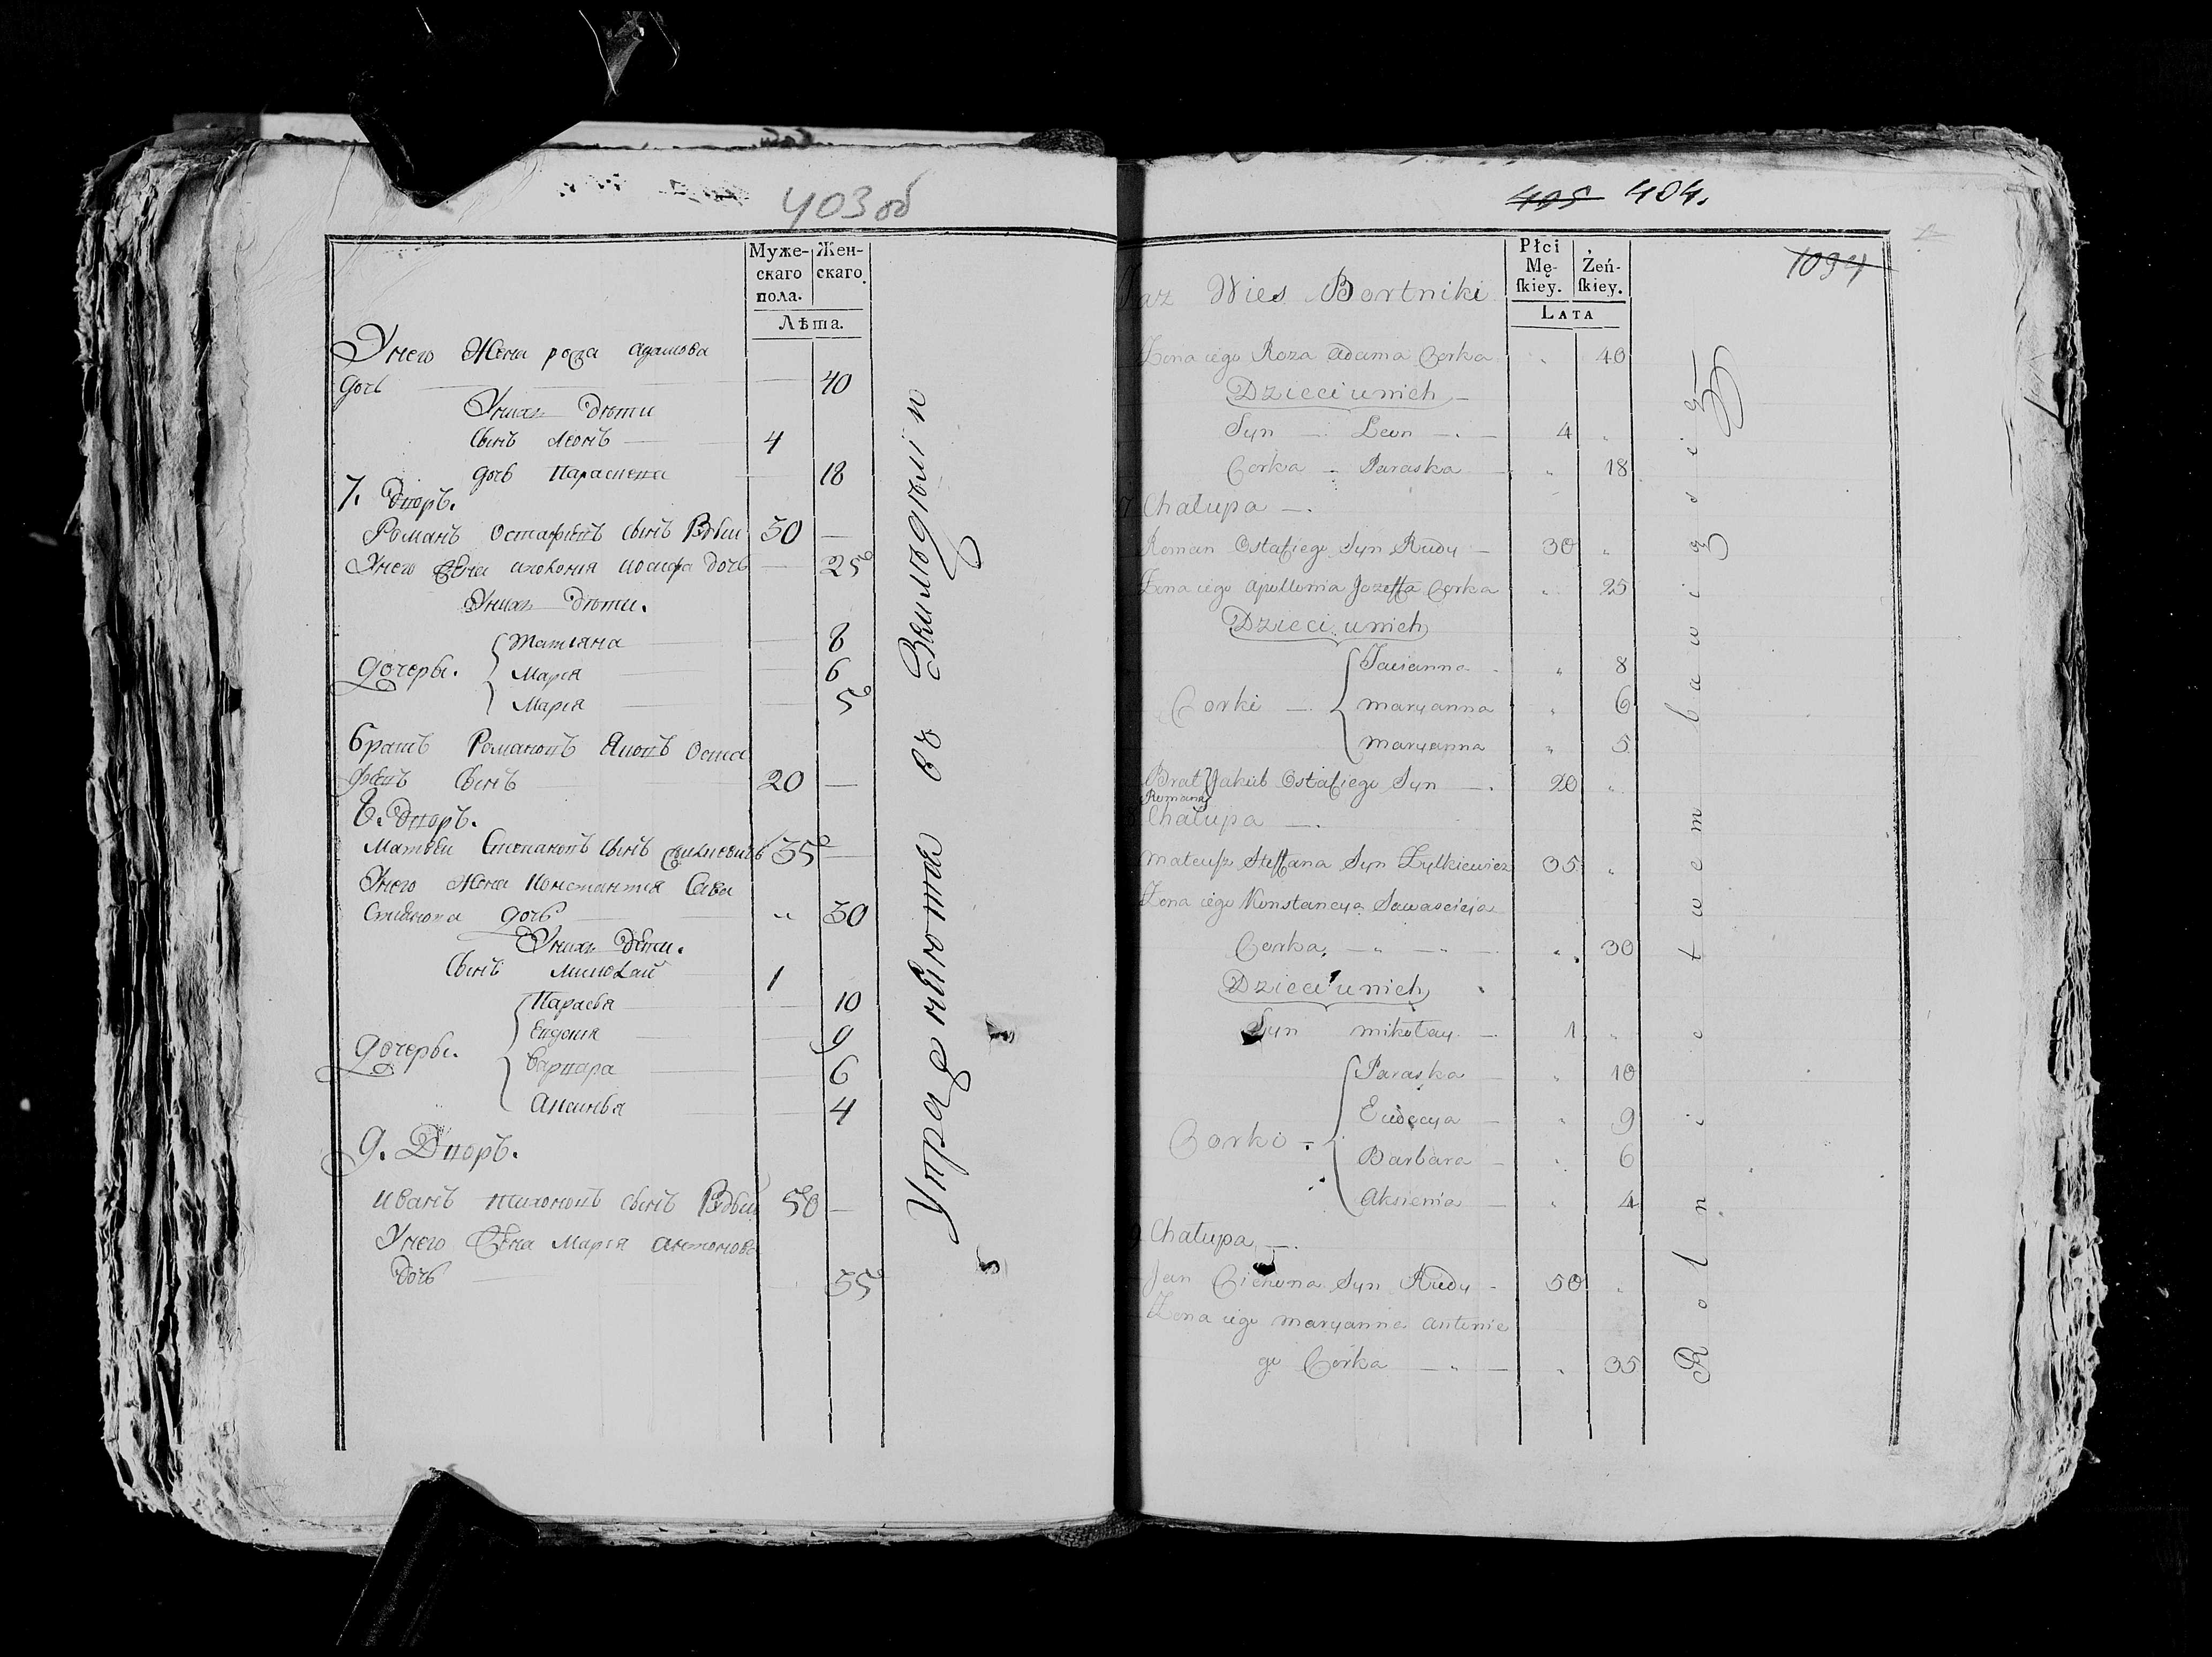 403 об
Муже-
скаго
пола.
Жен-
скаго.
Лѣта.
Унего Жена роза адамова
дочь 40
Унихъ дѣти
сынъ леонъ 4
дочь Параскева 18
7. Дворъ.
Романъ остафiевъ сынъ 30
Унего жена аполония иосифа дочь 25
Унихъ дѣти.
дочеры.
татiяна 8
Марiя 6
Марiя 5
братъ Романовъ Яковъ оста
фѣвъ сынъ 20
8. дворъ.
Матвеи Степановъ сынъ 35
Унего жена Константiя Сава
дочь 30
Унихъ дѣти.
сынъ николай 1
дочеры.
Парасья 10
Евдокiя 9
варвара 6
Аксинья 4
9. Дворъ.
иванъ тихоновъ сынъ 50
Унего жена Марiя антонова
дочь 35
Упражняются въ Земледѣлiи
405 404.
1094
Wies Bortniki
Płci
Mę-
ſkiey.
Żeń-
ſkiey.
LATA
Zona iego Roza Adama Corka 40
Dzieci u nich
Syn Leon 4
Corka Paraska 18
7 Chałupa
Roman Ostafiego Syn Rudy 30
Zona iego Apollonia Jozeffa Corka 25
Dzieci u nich
Corki
Tacianna 8
Maryanna 6
Maryanna 5
Brat Jakub Ostafiego Syn 20
Romana
8 Chałupa
Mateusz Steffana Syn Zylkiewicz 35
Zona iego Konstancya
Corka 30
Dzieci u nich
Syn Mikołay 1
Corki
Paraska 10
Eudocya 9
Barbara 6
Aksienia 4
9 Chałupa
Jan Cichona Syn Rudy 50
Zona iego Maryanna Antonie
go Corka 35
Rolnictwem bawią się